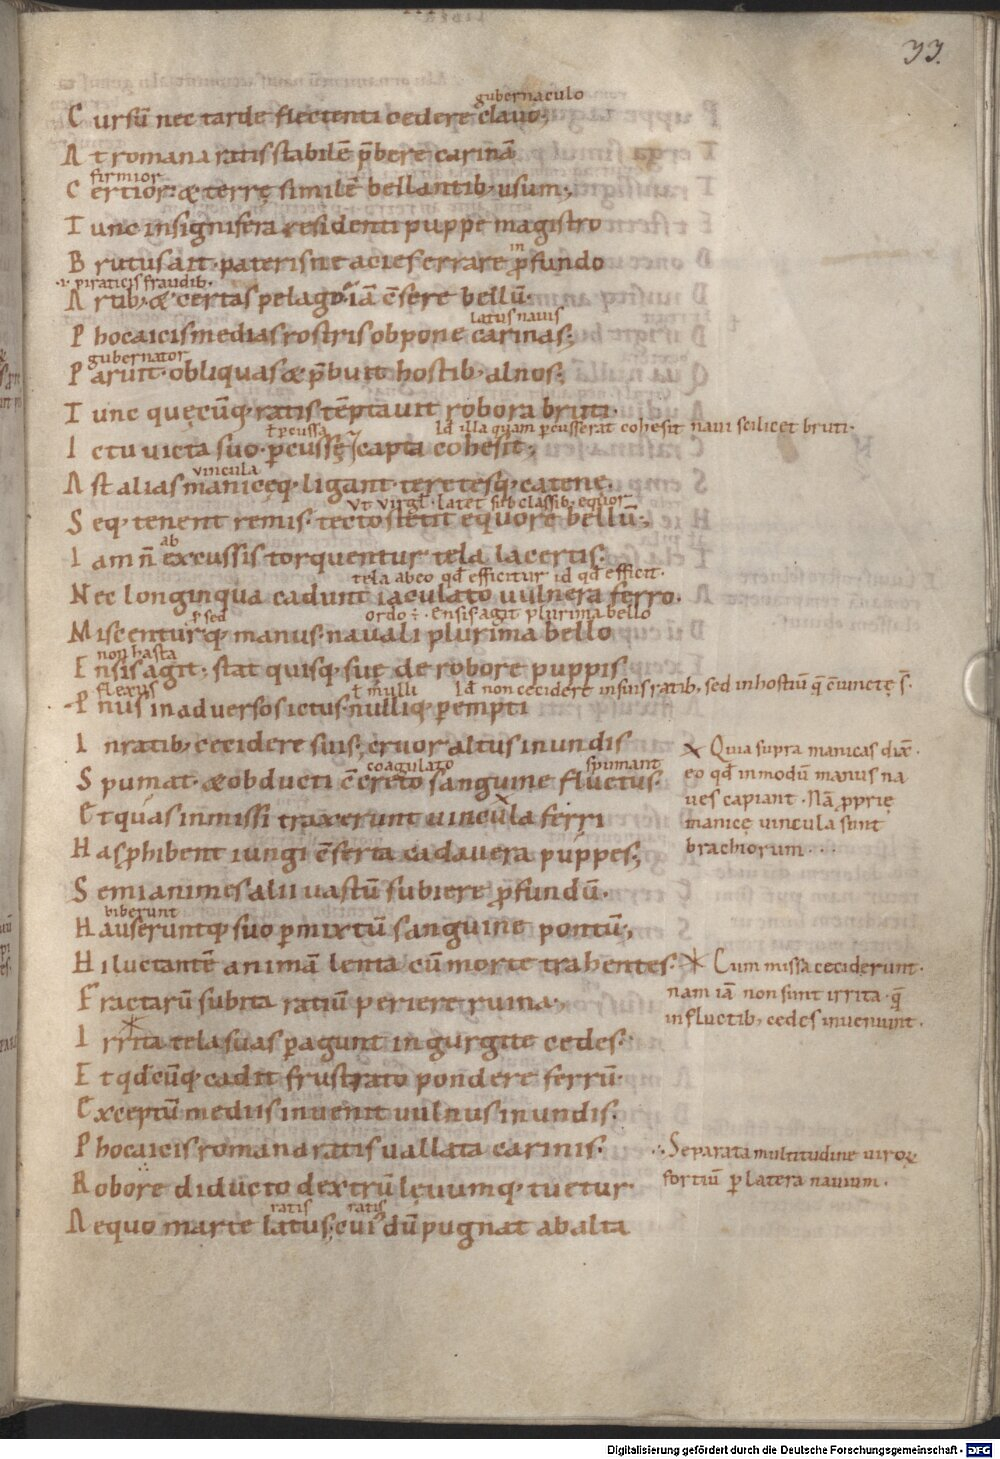 33.
gubernaculo
Cursū nec tarde flectenti cedere clauo;
At romana ratis stabilē p̄bere carinā
firmior
Certior: & terrę similē bellantib; usum;
Tunc insignifera residenti puppe magistro
in
Brutus ait· pateris ne acies errare p̄fundo
·i· piraticis fraudib·
Artib; & certas pelago· iā c̄sere bellū·
latus nauis
Phocaicis medias rostris obpone carinas;
gubernator
Paruit· obliquas & p̄buit hostib; alnos;
Tunc quęcūq; ratis tēptauit robora bruti·
ł percussa
ld̄ illa quam ꝑcusserat cohesit naui scilicet bruti·
Ictu uicta suo· ꝑcussę capta cohesit;
vincula
Ast alias manicęq; ligant· teretesq; catenę·
vt virgł· latet sub classib; equor
Seq; tenent remis· tecto stetit equore bellū;
ab
Iam n̄ excussis torquentur tela lacertis·
tela abeo qd̄ efficitur id qd̄ efficit·
Nec longinqua cadunt iaculato uulnera ferro·
sed
ordo ÷· Ensis agit plurima bello
Miscenturq; manus· nauali plurima bello
non hasta
Ensis agit· stat quisq; suę de robore puppis
flexus
ł multi
ld̄ non cecidere in suis ratib; sed in hostiū q̄ c̄iunctę s̄·
Pnus in aduersos ictus· nulliq; ꝑempti
In ratib; cecidere suis; cruor altus in undis
coagulato
spumant
Spumat· & obducti c̄creto sanguine fluctus·
Et quas inmissi traxerunt uincula ferri
Has ꝓhibent iungi c̄serta cadauera puppes;
Quia supra manicas dix̄·
eo qd̄ in modū manus na
ues capiant· Nā ꝓprię
manicę uincula sunt
brachiorum···
Semianimes alii uastū subiere p̄fundū·
biberunt
Hauseruntq; suo ꝑmixtū sanguine pontū;
Hi luctantē animā lenta cū morte trahentes·
Fractarū subita ratiū periere ruina·
Cum missa ceciderunt·
nam iā non sunt irrita· q̄
in fluctib; cedes inuenunt·
Irrita tela suas ꝑagunt in gurgite cedes·
Et qd̄cūq; cadit frustrato pondere ferrū·
Exceptū mediis inuenit uulnus in undis·
Phocaicis romana ratis uallata carinis·
Separata multitudine uiroꝝ
fortiū ꝑ latera nauium·
Robore diducto dextrū lęuumq; tuetur·
ratis
ratis
Aequo marte latus; cui dū pugnat ab alta
Digitalisierung gefördert durch die Deutsche Forschungsgemeinschaft - DFG